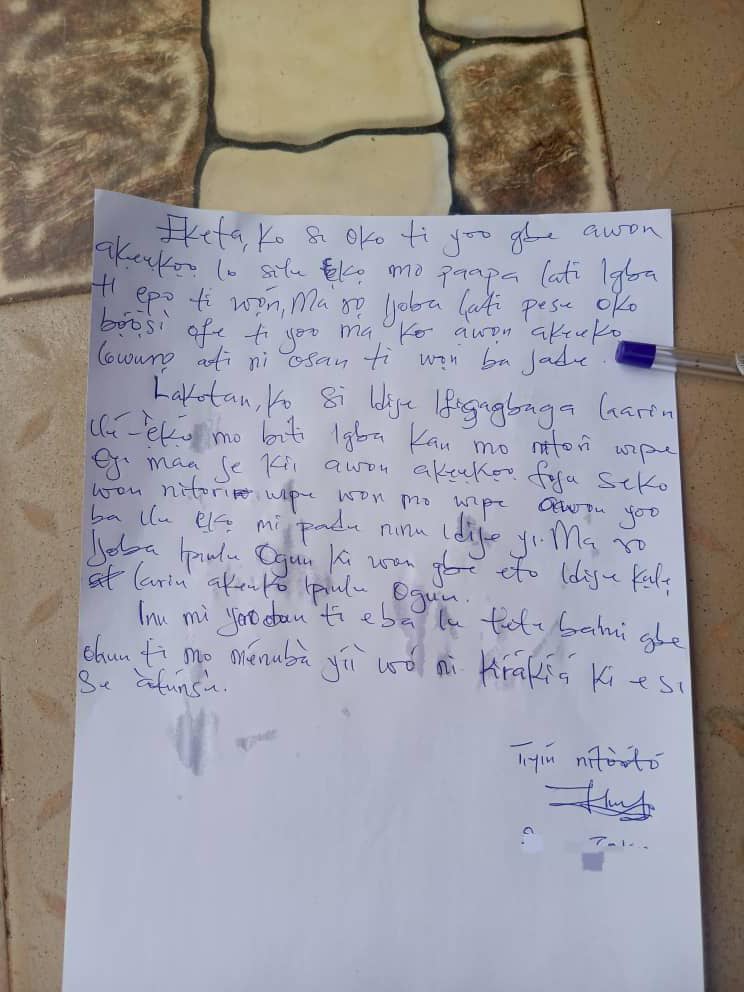 Iketa, ko si oko ti yoo gbe awon
akẹẹkọọ lo si ilu Eko mo paapa lati Igba
ti epo ti wọ́n, Ma rọ Ijoba lati pese oko
bọ́ọ̀sì ofe ti yoo ma ko awọn akẹẹkọ
lowurọ ati ni osan ti wọn ba jade.
Lakotan, ko si Idije Ifigagbaga laarin
ilé-èkó mo biti Igba kan mo nitori wipe
Eyi maa je kii awon akẹẹkọọ foju seko
won nitori wipe won mo wipe awon yoo
ba ile eko mi padu ninu Idije yi. Ma ro
Ijoba Ipinlu Ogun ki won gbe eto Idije kale
larin akẹẹkọ Ipinlu Ogun.
Inu mi yoo dun ti eba le tete bami gbe
ohun ti mo ménubà yíì wò ni kíràkíá ki e si
se àtúnsẹ.
Tiyín nítòótó